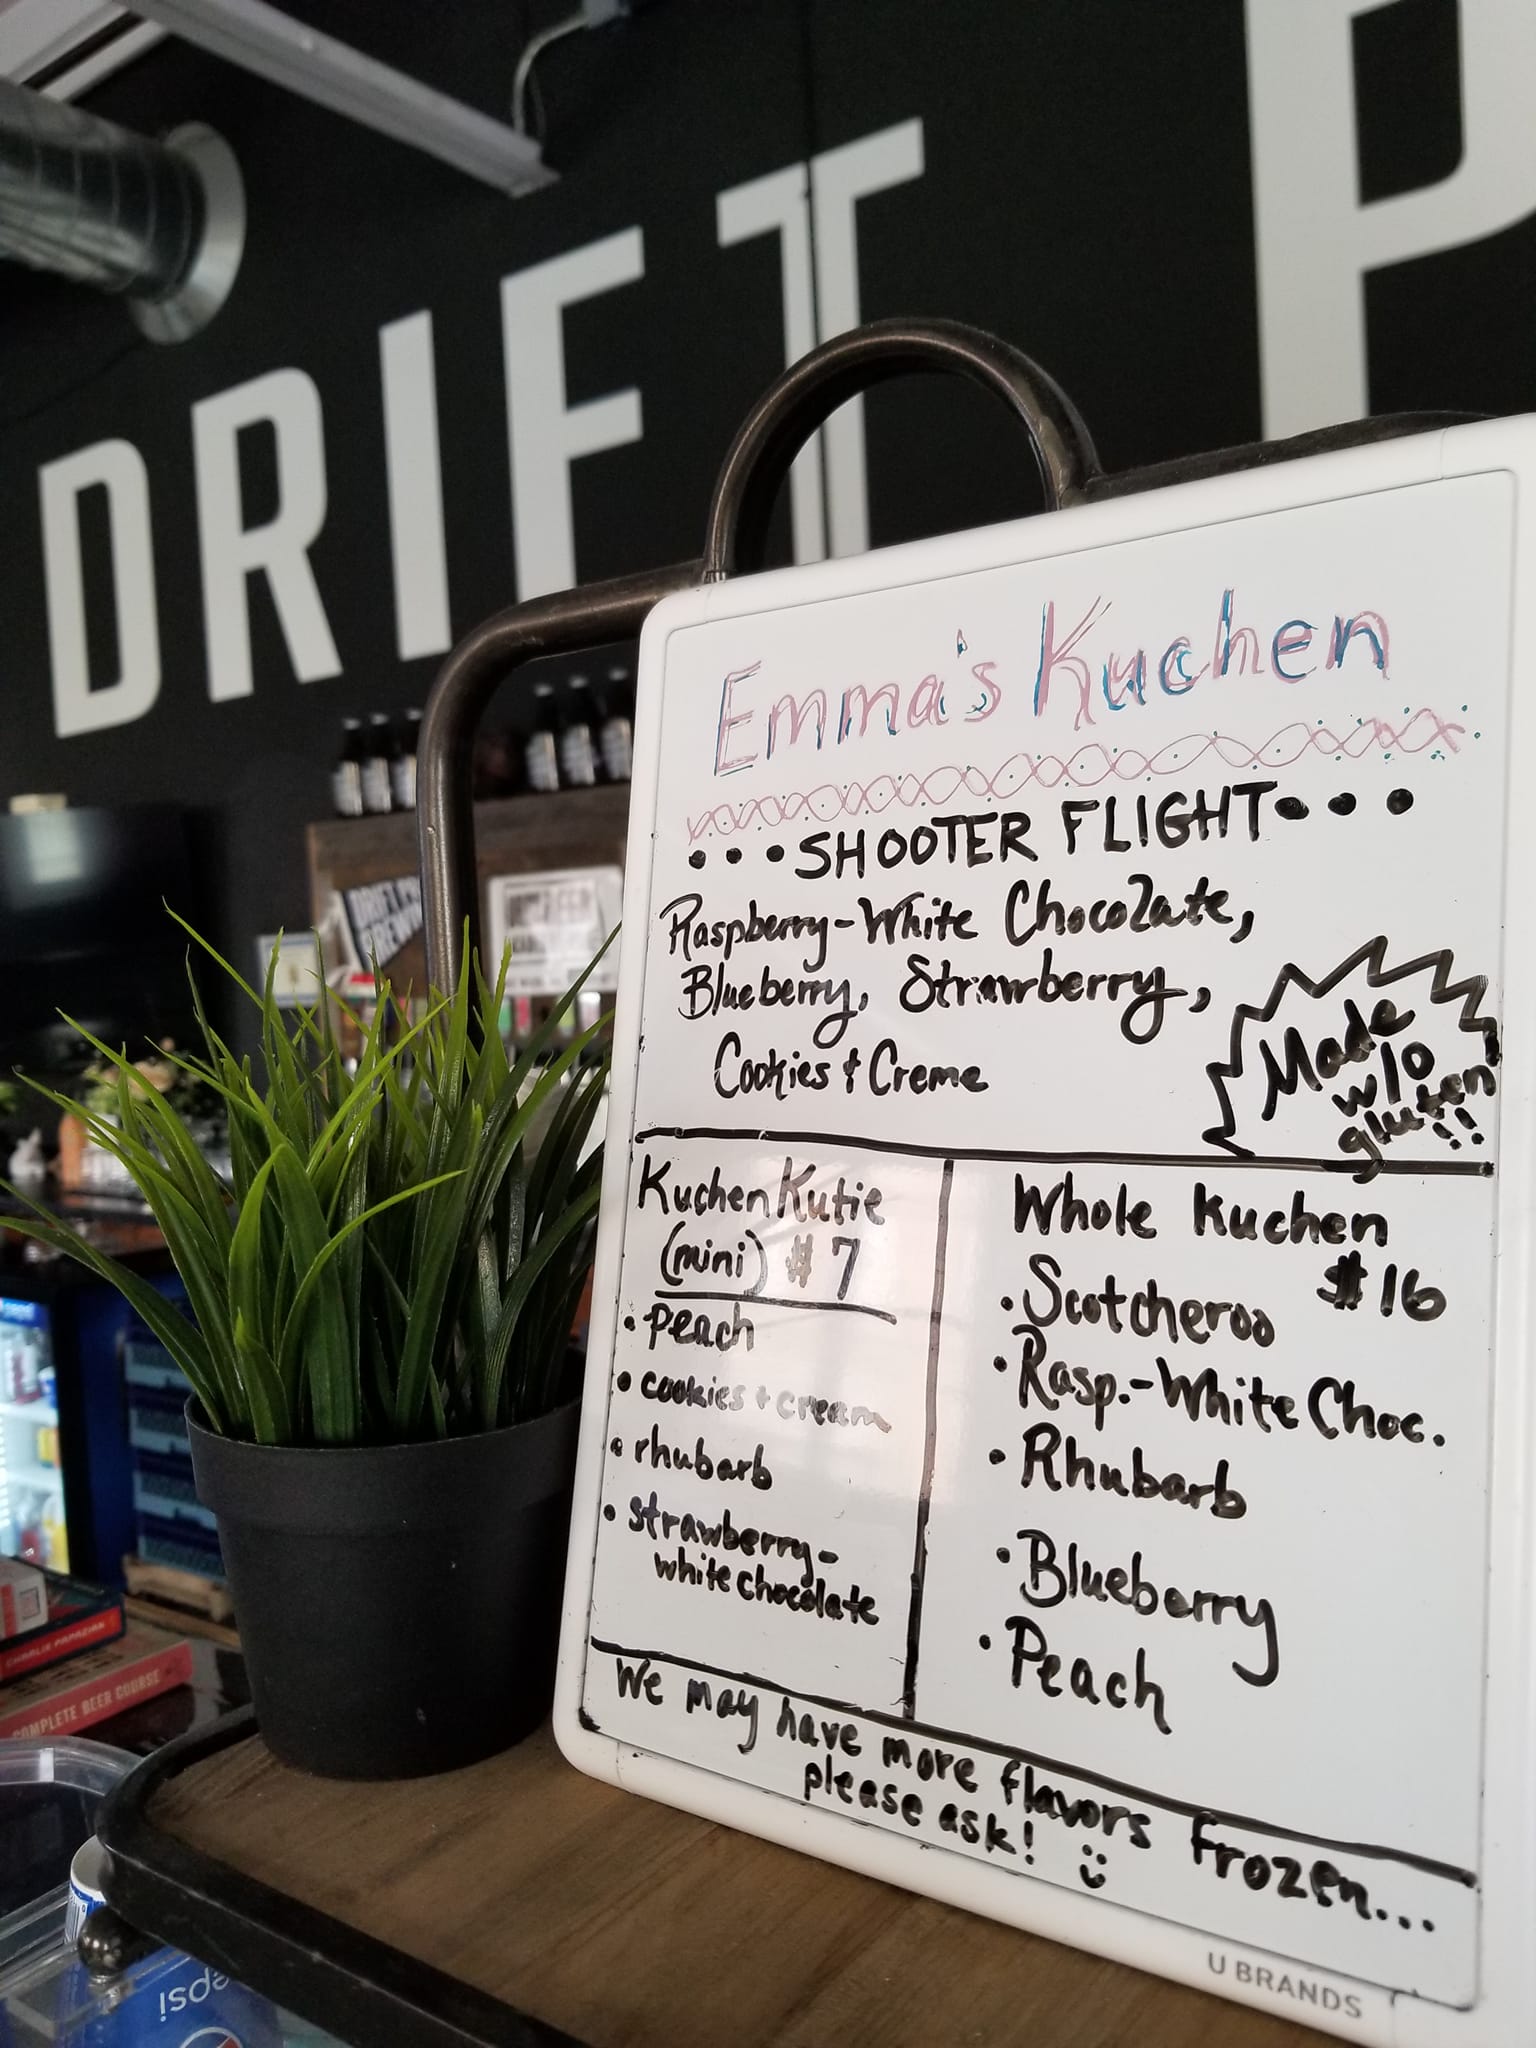 DRIFT P
Emma's Kuchen
•••SHOOTER FLIGHT•••
Raspberry-White Chocolate,
Blueberry, Strawberry,
Cookies + Creme
Made
w/o
gluten
!!
Kuchen Kutie
(mini) $7
• peach
• cookies + cream
• rhubarb
• strawberry-
white chocolate
Whole Kuchen
$16
• Scotcheroo
• Rasp.-White Choc.
• Rhubarb
• Blueberry
• Peach
We may have more flavors frozen...
please ask! :)
U BRANDS
CHARLIE PAPAZIAN
COMPLETE BEER COURSE
pepsi